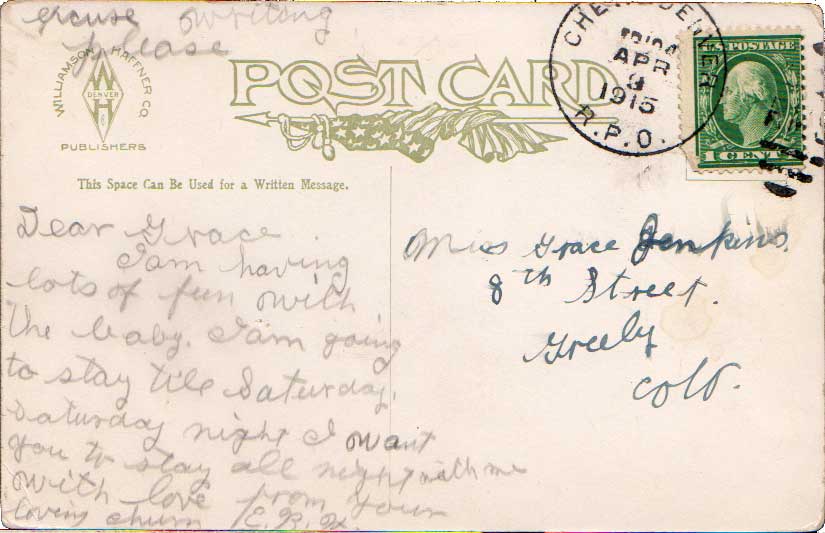 excuse writing
please
WILLIAMSON HAFFNER CO.
W
DENVER
H
PUBLISHERS
POST CARD
CHEY. DENVER
TR104
APR
9
1915
R.P.O.
U.S. POSTAGE
1 CENT 1
This Space Can Be Used for a Written Message.
Dear Grace.
I am having
lots of fun with
the baby. I am going
to stay till Saturday.
Saturday night I want
you to stay all night with me
with love from your
loving chum E.B.
Miss Grace Jenkins.
8th Street.
Greely
Colo.